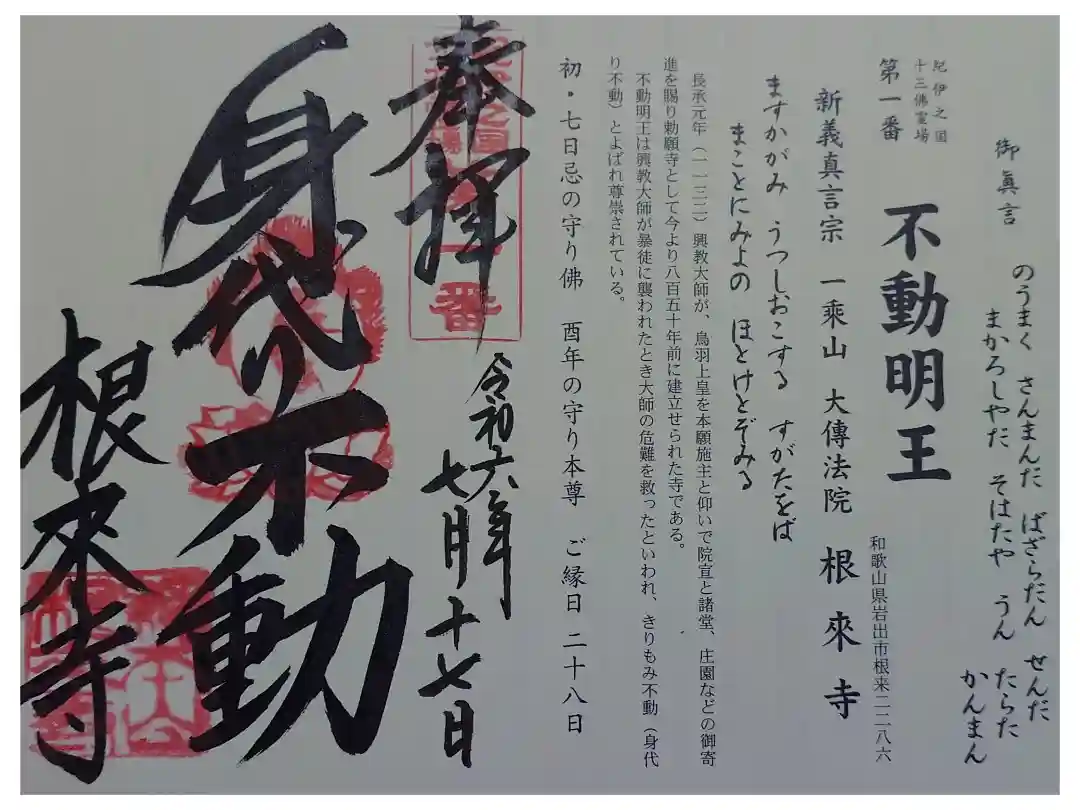 御眞言
のうまく さんまんだ ばざらだん せんだ
まかろしやだ そはたや うん たらた
かんまん
紀伊之国
十三佛霊場
第一番 不動明王
和歌山県岩出市根来二二八六
新義真言宗 一乘山 大傳法院 根來寺
ますかがみ うつしおこする すがたをば
まことにみよの ほとけとぞみる
長承元年（一一三二）興教大師が、鳥羽上皇を本願施主と仰いで院宣と諸堂、庄園などの御寄
進を賜り勅願寺として今より八百五十年前に建立せられた寺である。
不動明王は興教大師が暴徒に襲われたとき大師の危難を救ったといわれ、きりもみ不動（身代
り不動）とよばれ尊崇されている。
初・七日忌の守り佛 酉年の守り本尊 ご縁日 二十八日
奉拝
令和六年
七月十七日
身代り不動
根來寺